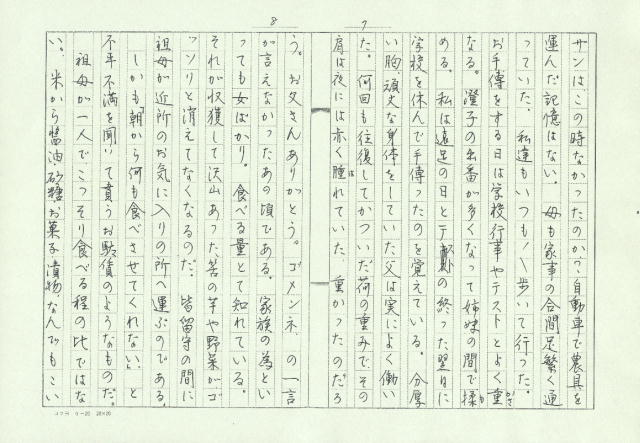 7
サンは、この時なかったのか?自動車で農具を
運んだ記憶はない。母も家事の合間足繁く通
っていた。私達もいつも〱歩いて行った。
お手傳をする日は学校行事やテストとよく重
かさ
なる。澄子の出番が多くなって姉妹の間で揉
も
ある。私は遠足の日との終った翌日に
学校を休んで手傳ったのを覚えている。分厚
い胸、頑丈な身体をしていた父は実によく働い
た。何回も往復してかついだ荷の重みで、その
肩は夜には赤く腫れていた、重かったのだろ
は
8
う。お父さんありがとう。ゴメンネ、の一言
が言えなかったあの頃である。家族の為とい
っても女ばかり。食べる量とて知れている。
それが収獲して沢山あった筈の芋や野菜がゴ
ッソリと消えてなくなるのだ。皆留守の間に
祖母が近所のお気に入りの所へ運ぶのである。
しかも「朝から何も食べさせてくれない」と
不平不満を聞いて貰うお駄賃のようなものだ。
祖母が一人でこっそり食べる程の比ではな
い。米から醤油、砂糖、お菓子、漬物、なんでもこい
20×20